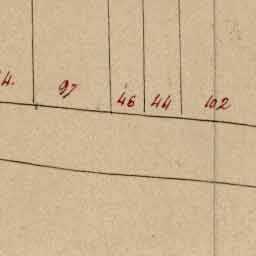 4. 97 46 44 102